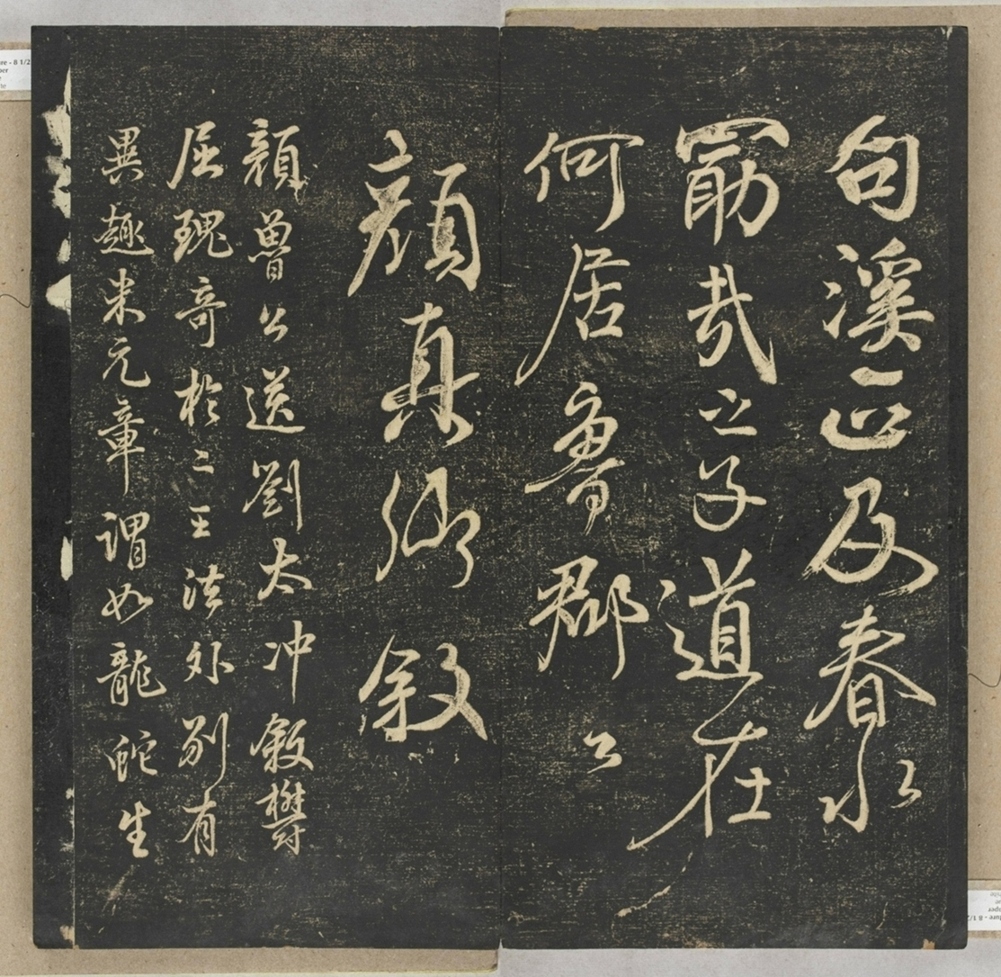 句溪正及春水
勗哉之子道在
何居魯郡公
顏真卿叙
顏魯公送劉太冲叙鬱
屈瑰奇於二王法外別有
異趣米元章謂如龍蛇生